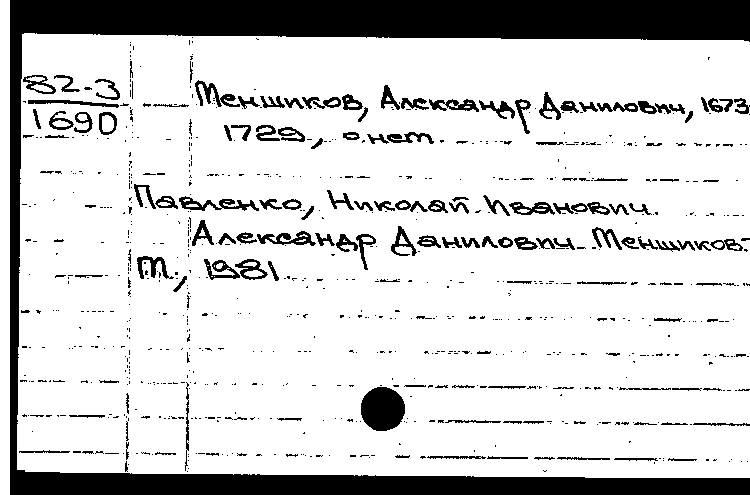 82-3
1690
Меншиков, Александр Данилович, 1673
1729, о нем.
Павленко, Николай Иванович.
Александр Данилович Меншиков.-
М., 1981